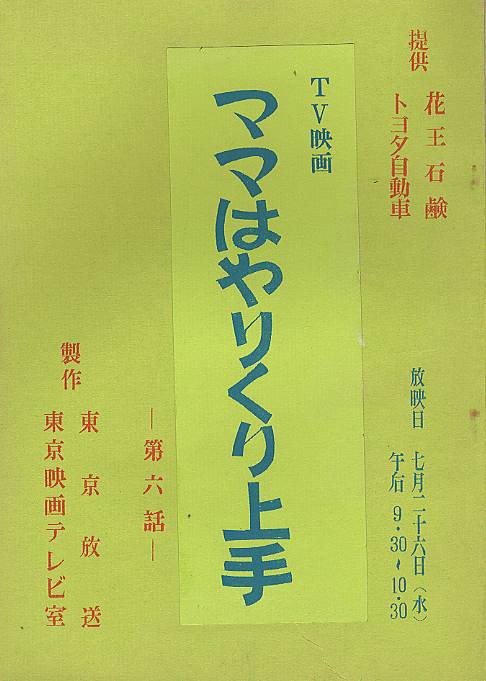 提供 花王石鹸
トヨタ自動車
放映日 七月二十六日（水）
午后 9・30～10・30
TV映画
ママはやりくり上手
―第六話―
製作 東京放送
東京映画テレビ室